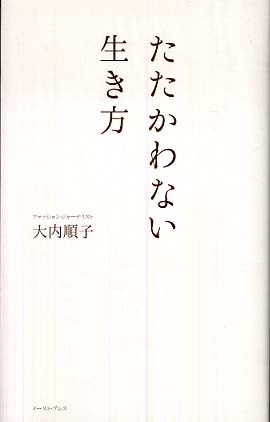 たたかわない
生き方
ファッションジャーナリスト
大内順子
イースト・プレス